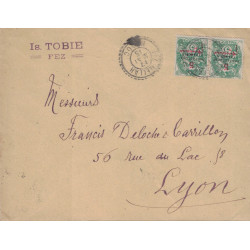 Is. TOBIE
FEZ
Messieurs
Francis Deloche & Carrillon
56 rue du Lac 58
Lyon